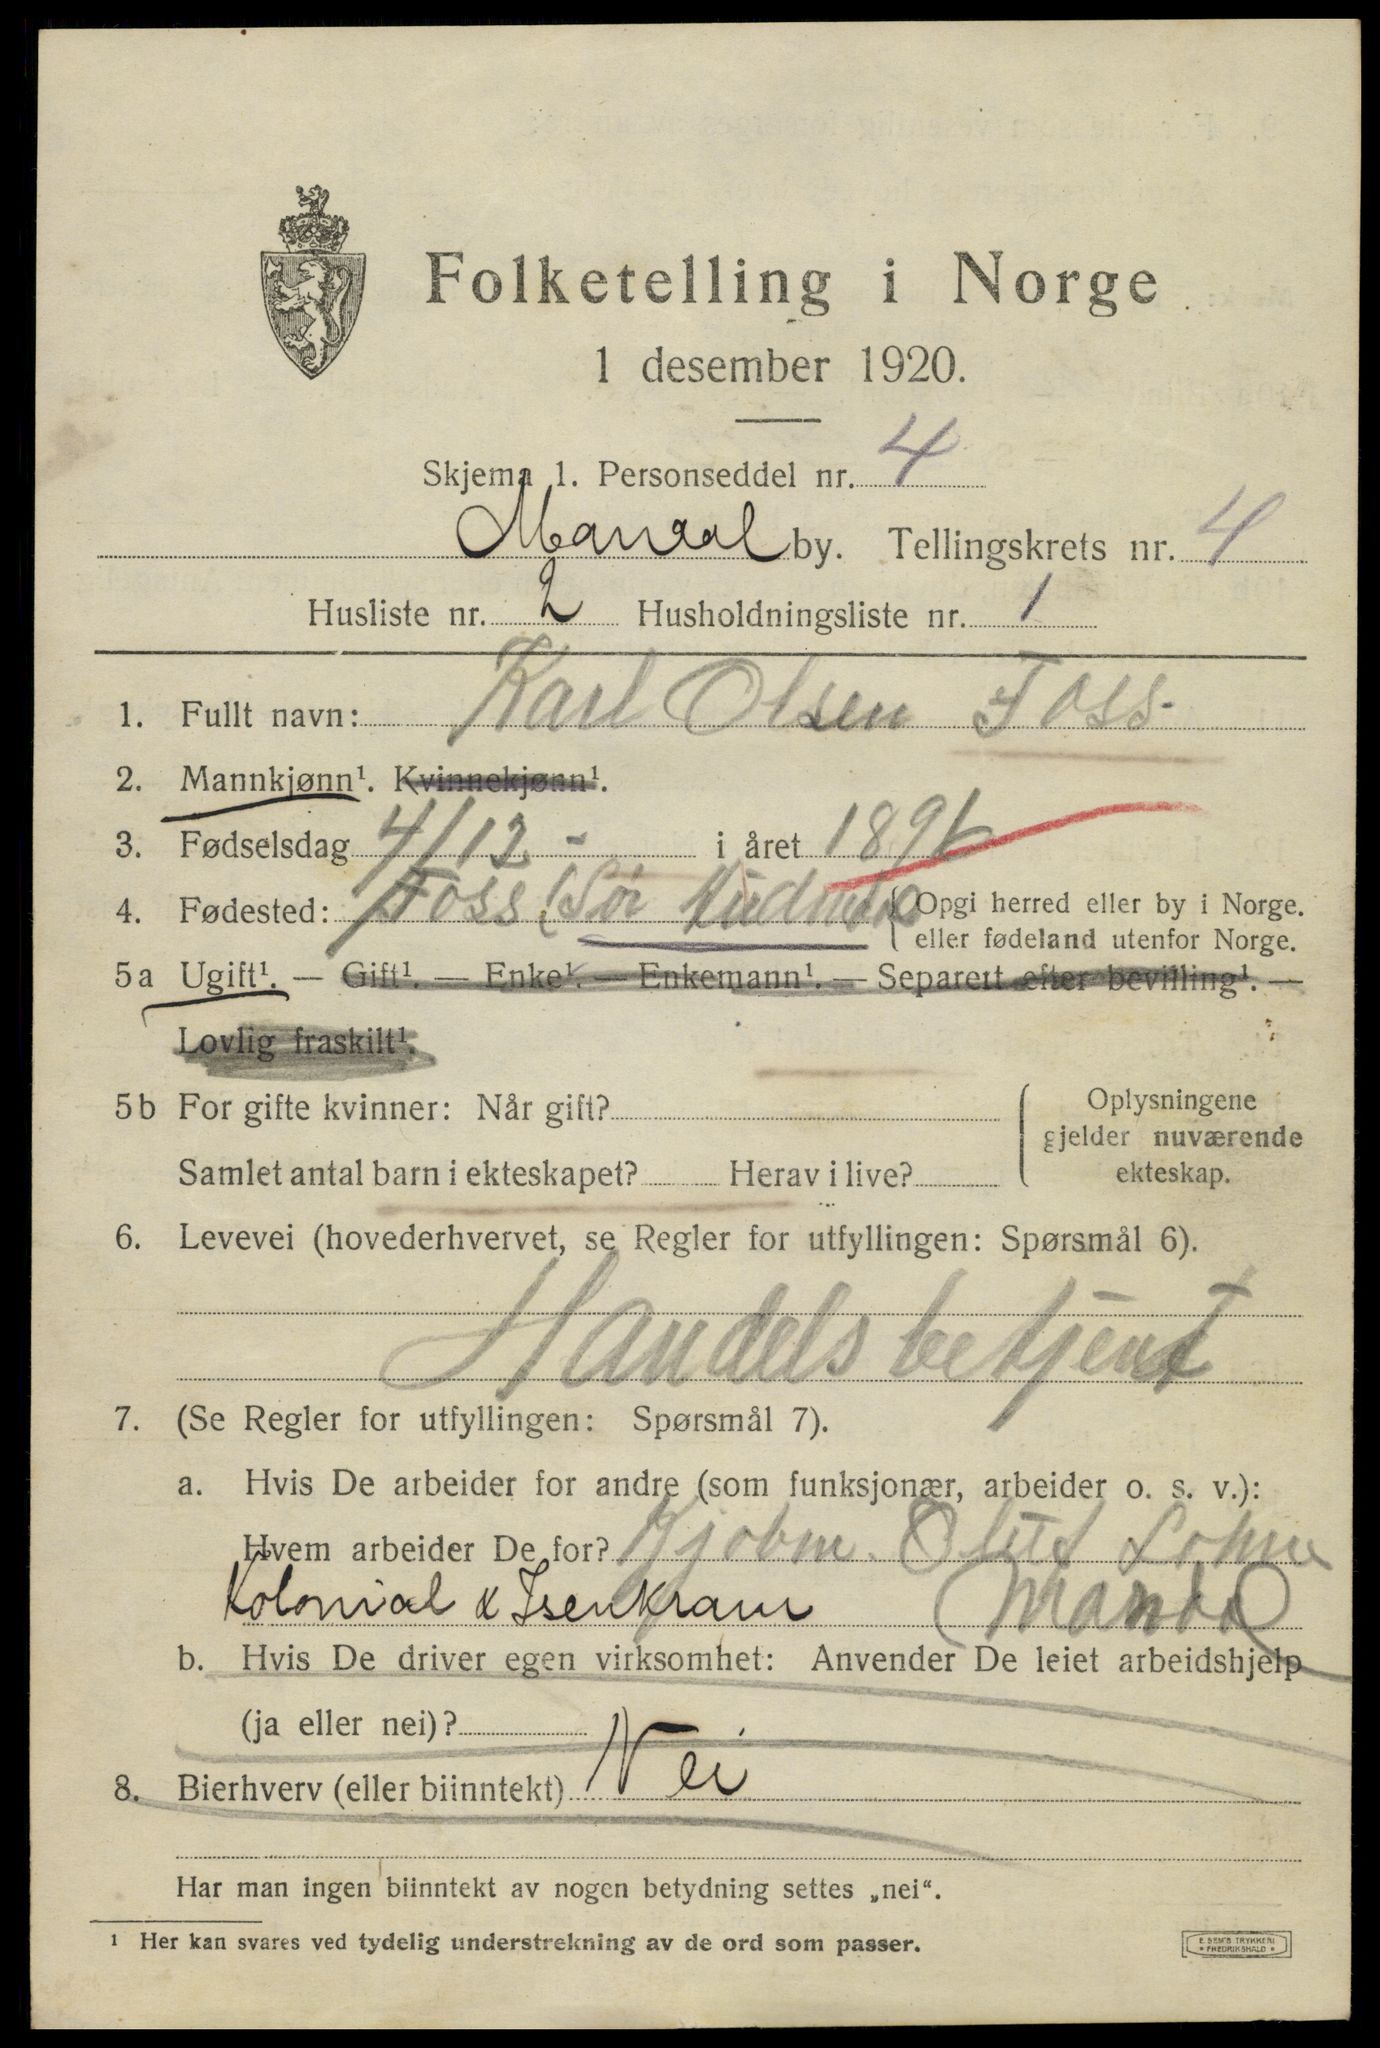 Folketelling i Norge
1 desember 1920.
Skjema 1. Personseddel nr. 4
Mandal by. Tellingskrets nr. 4
Husliste nr. 2 Husholdningsliste nr. 1
1. Fullt navn: Karl Olsen Foss
2. Mannkjønn¹. Kvinnekjønn¹.
3. Fødselsdag 4/12 - i året 1896
4. Fødested: Foss (Sør Audnedal {Opgi herred eller by i Norge.
eller fødeland utenfor Norge.
5a Ugift¹. — Gift¹. — Enke¹. — Enkemann¹. — Separert efter bevilling¹. —
Lovlig fraskilt¹.
5b For gifte kvinner: Når gift? { Oplysningene
gjelder nuværende
Samlet antal barn i ekteskapet? Herav i live? ekteskap.
6. Levevei (hovederhvervet, se Regler for utfyllingen: Spørsmål 6).
Handelsbetjent
7. (Se Regler for utfyllingen: Spørsmål 7).
a. Hvis De arbeider for andre (som funksjonær, arbeider o. s. v.):
Hvem arbeider De for? Kjøbm.
Kolonial & Isenkram (Mandal
b. Hvis De driver egen virksomhet: Anvender De leiet arbeidshjelp
(ja eller nei)?
8. Bierhverv (eller biinntekt) Nei
Har man ingen biinntekt av nogen betydning settes „nei“.
¹ Her kan svares ved tydelig understrekning av de ord som passer.
E. SEM'S TRYKKERI
FREDRIKSHALD